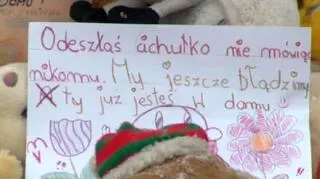 Odeszłaś cichutko nie mówiąc
nikomu. My jeszcze błądzimy
ty już jesteś w domu!